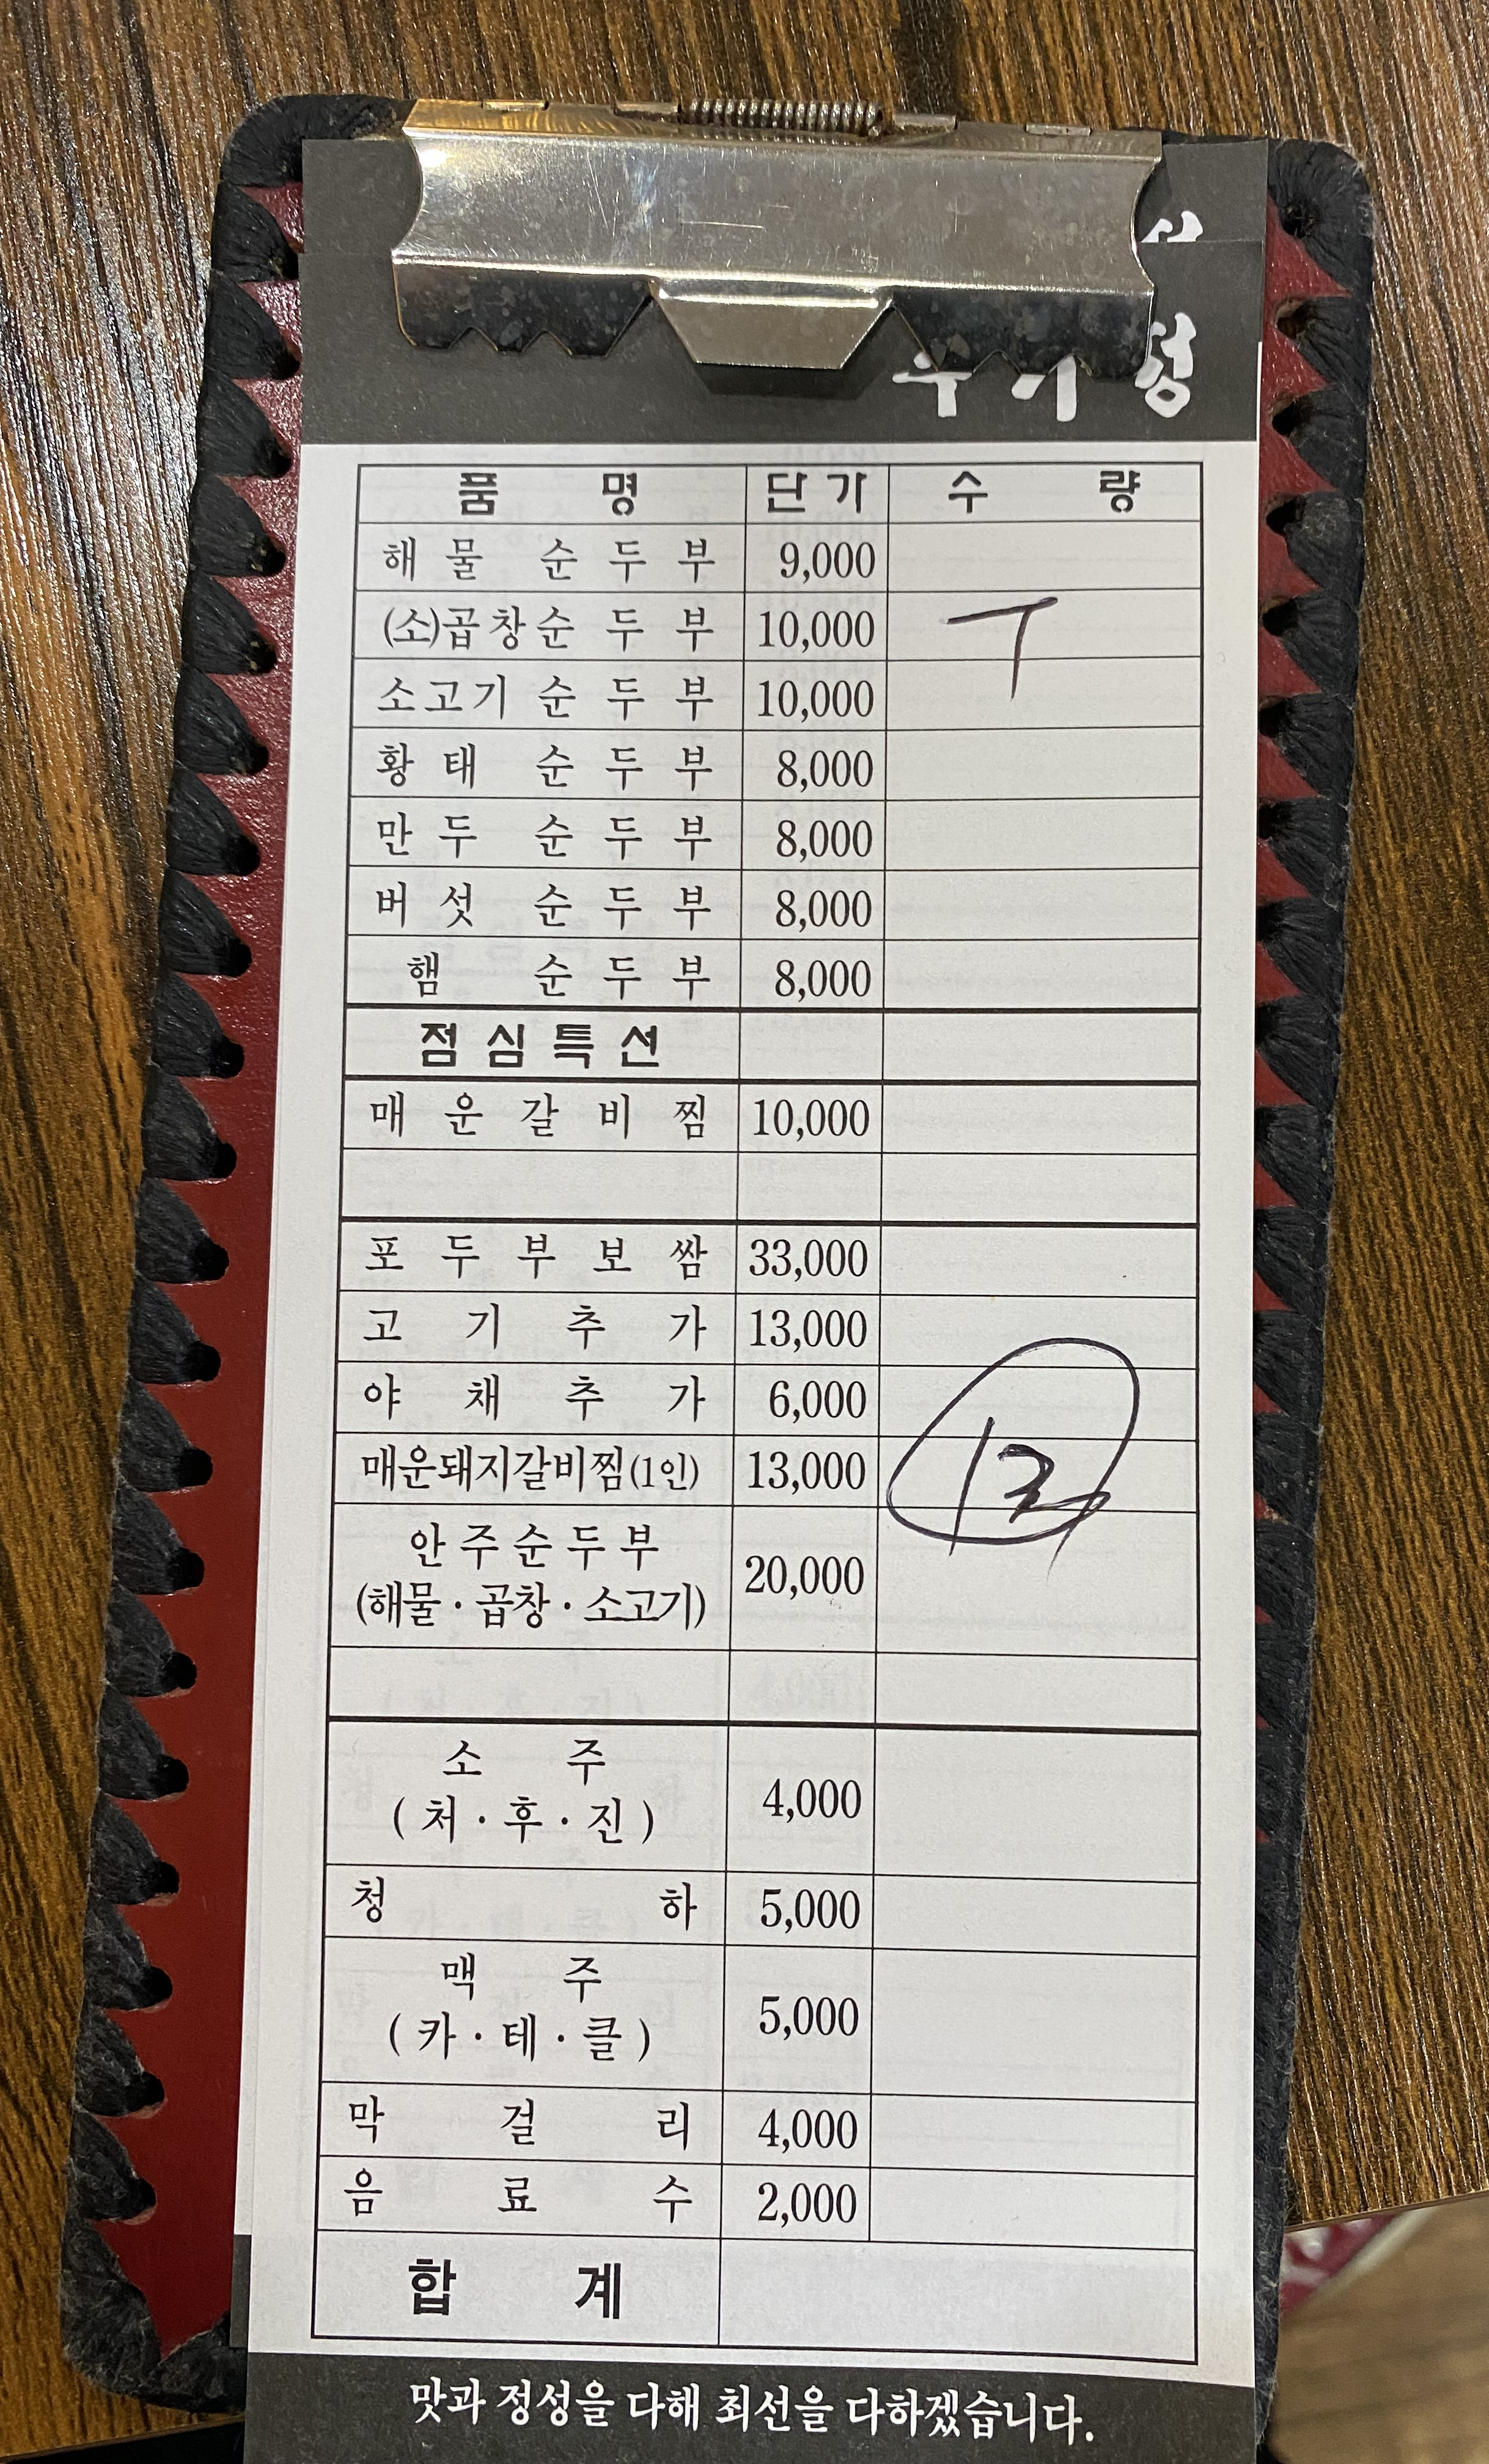 품 명 단가 수 량
해물 순두부 9,000
(소)곱창순두부 10,000
소고기 순두부 10,000
황태 순두부 8,000
만두 순두부 8,000
버섯 순두부 8,000
햄 순두부 8,000
점심특선
매운갈비찜 10,000
포두부보쌈 33,000
고기추가 13,000
야채추가 6,000
매운돼지갈비찜(1인) 13,000
안주순두부
(해물·곱창·소고기) 20,000
소 주
(처·후·진) 4,000
청하 5,000
맥 주
(카·테·클) 5,000
막걸리 4,000
음료수 2,000
합 계
맛과 정성을 다해 최선을 다하겠습니다.